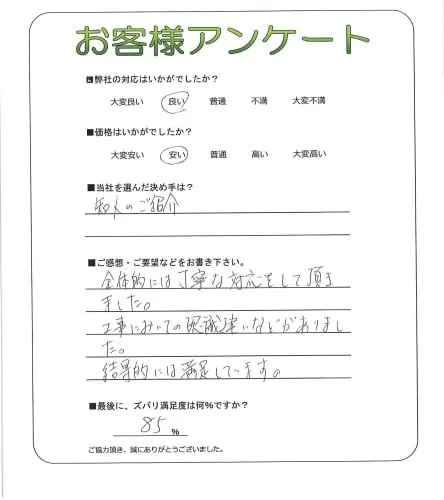 お客様アンケート
■弊社の対応はいかがでしたか?
大変良い 良い 普通 不満 大変不満
■価格はいかがでしたか?
大変安い 安い 普通 高い 大変高い
■当社を選んだ決め手は?
知人のご紹介
■ご感想・ご要望などをお書き下さい。
全体的には丁寧な対応をして頂き
ました。
工事においての認識違いなどがありまし
た。
結果的には満足しています。
■最後に、ズバリ満足度は何%ですか?
85 %
ご協力頂き、誠にありがとうございました。